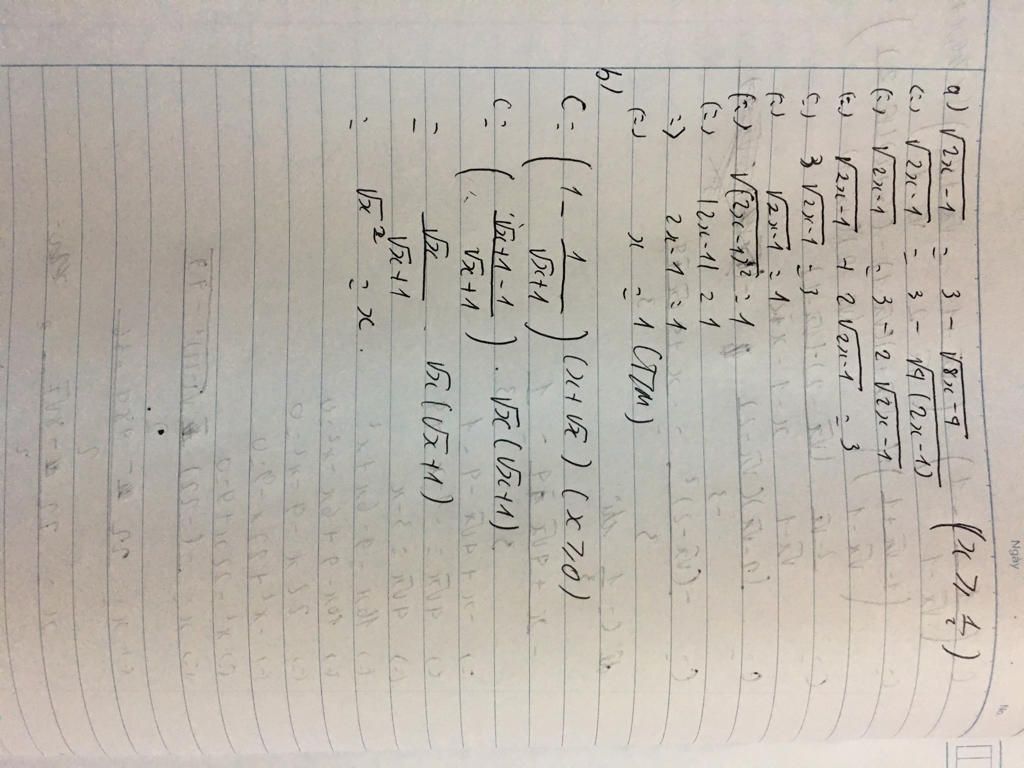 Ngày
No.
a) √(2x-1) = 3 - √(8x-4) (x ≥ 1/2)
(=) √(2x-1) = 3 - √(4(2x-1))
(=) √(2x-1) = 3 - 2.√(2x-1)
(=) √(2x-1) + 2√(2x-1) = 3
(=) 3√(2x-1) = 3
(=) √(2x-1) = 1
(=) √((2x-1)²) = 1
(=) |2x-1| = 1
=) 2x-1 = 1
(=) x = 1 (T/M)
b)
C = (1 - 1/(√x+1)) (x+√x) (x ≥ 0)
C = ((√x+1-1)/(√x+1)) . √x(√x+1)
= √x/(√x+1) . √x(√x+1)
= √x² = x.